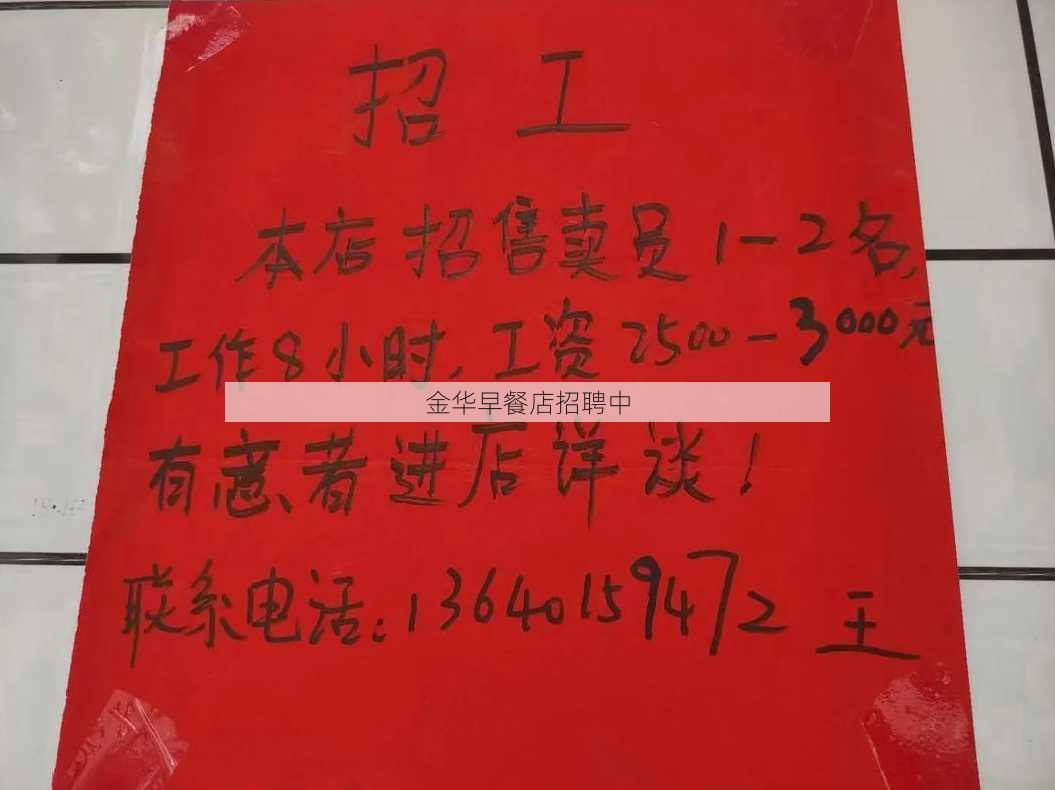 招工
本店招售卖员1-2名,
工作8小时,工资2500-3000元
金华早餐店招聘中
有意者进店详谈!
联系电话:13640159472 王